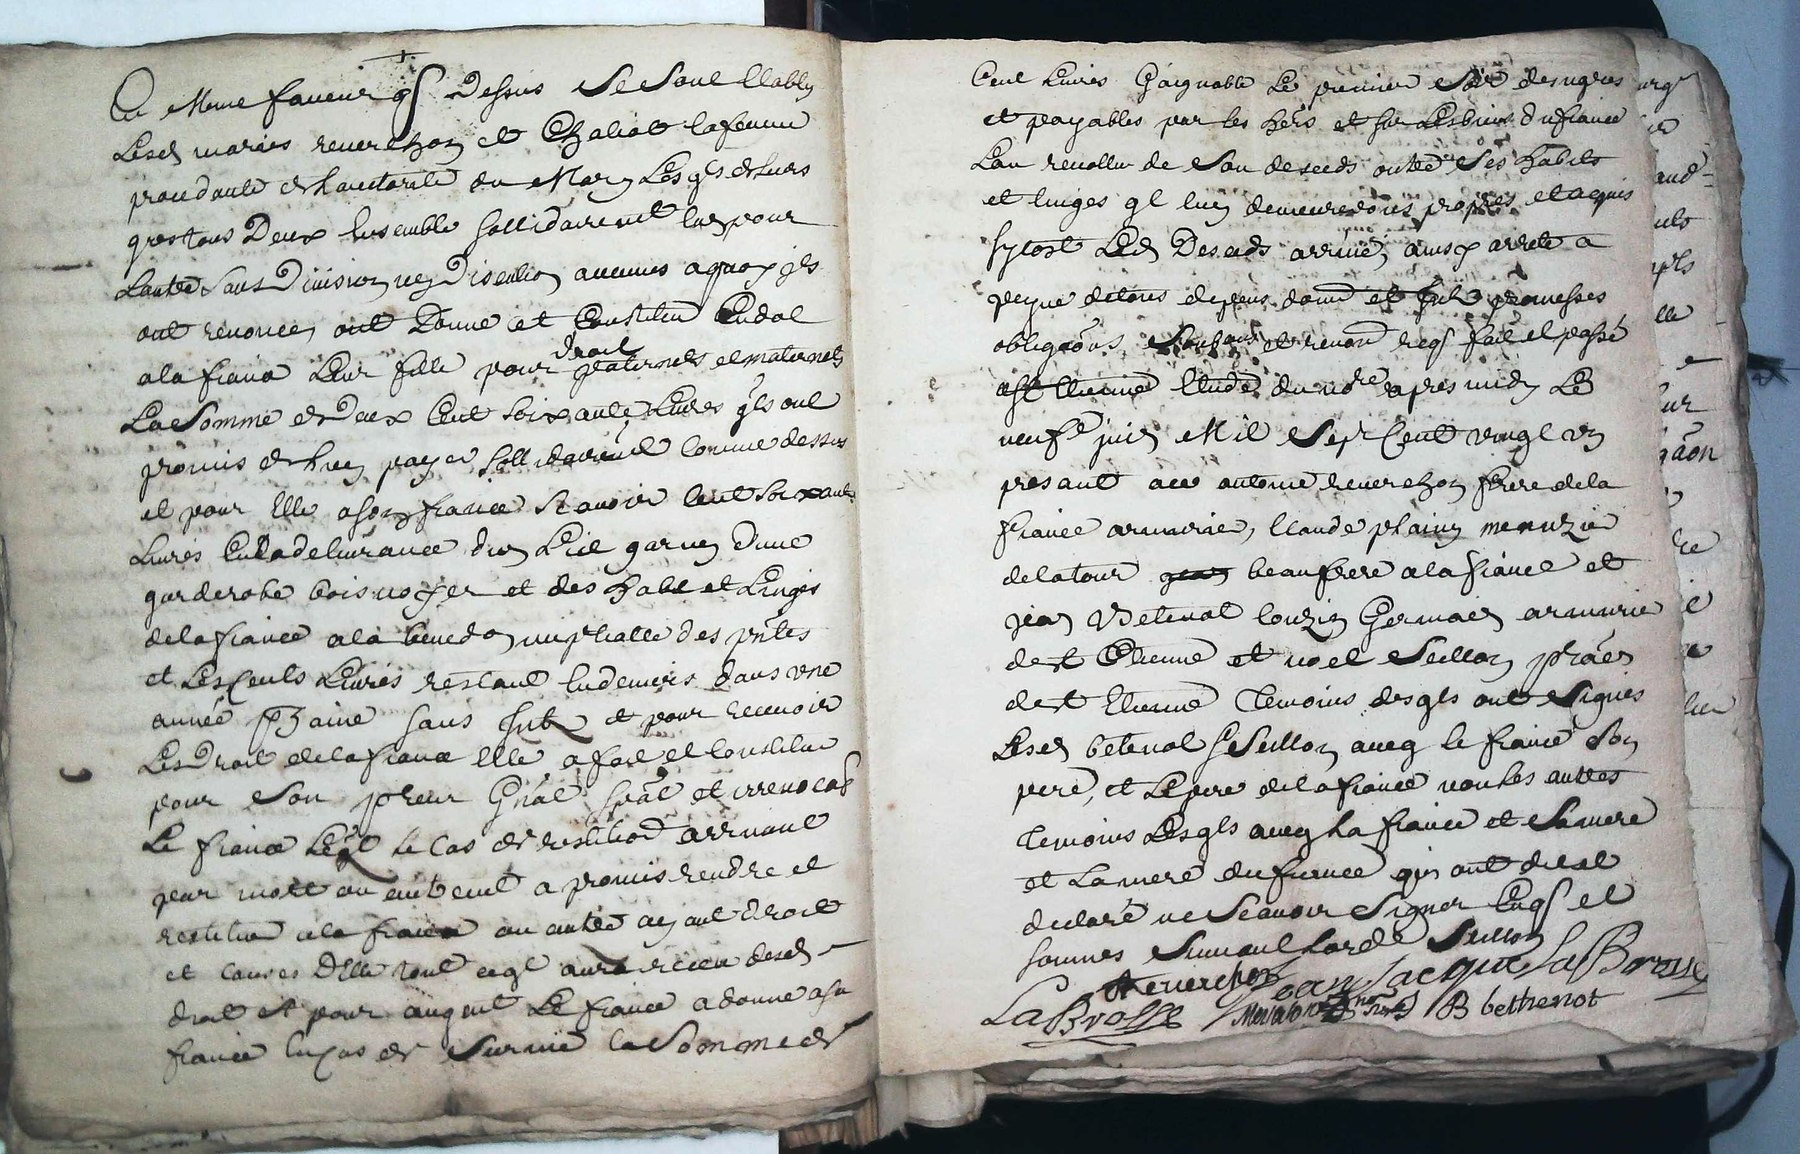 En Meme faveur q͠s Dessus Se Sont Etablis
Lesd mariés reverchon et Chaliat la femme
procedante de lauctorité du Mary Lesqls de leurs
gres tous Deux Ensemble sollidairement lun pour
Lautre Sans Division ney Discution aucunes aquoy ils
ont renoncés ont Donné et Constitué En dot
ala fiancé Leur fille pour droit paternels et maternels
La Somme de Deux Cent Soixante Livres qls ont
promis de luy payer sollidairement Comme dessus
et pour Elle a son fiancé Scavoir Cent Soixante
Livres En la delivrance dun Lict garny Dune
garderobe bois noyer et des Habt et Linges
dela fiancée ala bened͠on nuptialle des p͠ntes
et Les Cents Livres restant En deniers dans une
année p͠haine sans Int et pour recevoir
Les Droit dela fiancé Elle a fait et Constitué
pour Son p͠reur G͠nal Sp͠al et irrevocab
Le fiancé Leql le cas de restitiõ arrivant
par mort ou autremt a promis rendre et
restituer ala fiancé ou autre ayant droit
et causes Delle tout ceql aura receu desd
droit et pour augmt Le fiancé a donné a sa
fiancée En cas de Survie la Somme de
Cent Livres Gaignable Le premier Soir des nopces
et payables par les hers et sur Les biens du fiancé
L'an revollu de Son deceds outre Ses habits
et linges ql luy demeureront propres et aquis
sytost Led Deceds arrivé, ainsy arreté a
peyne de tous depens dom et Int promesses
obliga͠ons Soubmis et renon͠ req͠s fait et passé
a St Etienne Etude du nore apres midy Le
neufe juin Mil Sept Cent vingt un
presant avec antoine reverchon frere dela
fiancé armurie, Claude plainy menuzié
de la tour beaufrere ala fiancé et
jean Betenot Couzin Germain armurié
de St Etienne et noel Seillon p͠raen
de St Etienne Temoins desqls ont Signés
Lesd betenot Seillon avecq le fiancé Son
pere, et Le pere dela fiancé non les autres
Temoins Lesqls avecq la fiancé et Sa mere
et La mere du fiancé qui ont dit et
declaré ne Scavoir Signer Enqs et
Sommés Suivant Lorde Seillon
Reverchon Jean Jacque La Brosse
La Brosse B bethenot